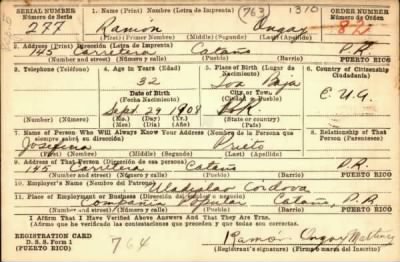 SERIAL NUMBER
Número de Serie
277
1. Name (Print) Nombre (Letra de Imprenta)
763
1310
Ramón Ongay
(First) (Primer Nombre) (Middle) (Segundo) (Last) (Apellido)
ORDER NUMBER
Número de Orden
2. Address (Print) Dirección (Letra de Imprenta)
145 Carretera Cataño P.R.
(Number and street) (Número y calle) (Town) (Pueblo) PUERTO RICO
3. Telephone (Teléfono)
4. Age in Years (Edad)
32
Date of Birth
(Fecha Nacimiento)
Sept. 29 1908
(Mo.) (Mes) (Day) (Día) (Yr.) (Año)
5. Place of Birth (Lugar de Nacimiento)
Toa Baja
City or Town,
(Ciudad o Pueblo)
P.R.
(State or country)
(Estado o País)
6. Country of Citizenship
(Ciudadanía)
E.U.A.
7. Name of Person Who Will Always Know Your Address (Nombre de la Persona que siempre sabrá su dirección)
Josefina Prieto
(First) (Primer nombre) (Middle) (Segundo) (Last) (Apellido)
8. Relationship of That Person (Parentesco)
9. Address of That Person (Dirección de esa persona)
145 Carretera Cataño P.R.
(Number and street) (Número y calle) (Town) (Pueblo) PUERTO RICO
10. Employer's Name (Nombre del Patrono)
Wladislao Córdova
11. Place of Employment or Business (Dirección del patrono o negocio)
Compañía Popular Cataño, P.R.
(Number and street) (Número y calle) (Town) (Pueblo) PUERTO RICO
I Affirm That I Have Verified Above Answers And That They Are True.
(Afirmo que he verificado las contestaciones que preceden y que todas son correctas.
REGISTRATION CARD
D. S. S. Form 1
(PUERTO RICO)
764
Ramón Ongay Martínez
(Registrant's signature) (Firma o marca del Inscrito)